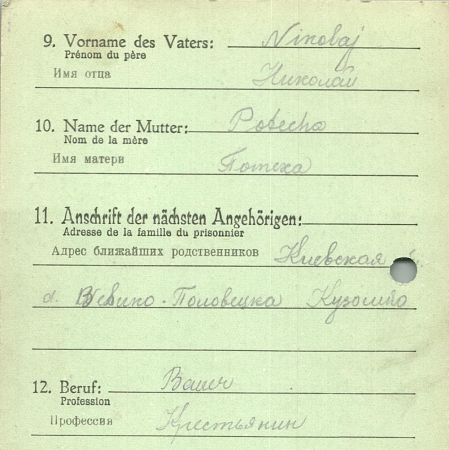 9. Vorname des Vaters: Nikolaj
Prénom du père
Имя отца Николай
10. Name der Mutter: Potecha
Nom de la mère
Имя матери Потеха
11. Anschrift der nächsten Angehörigen:
Adresse de la famille du prisonnier
Адрес ближайших родственников Киевская
д. Половецка
12. Beruf: Bauer
Profession
Профессия Крестьянин